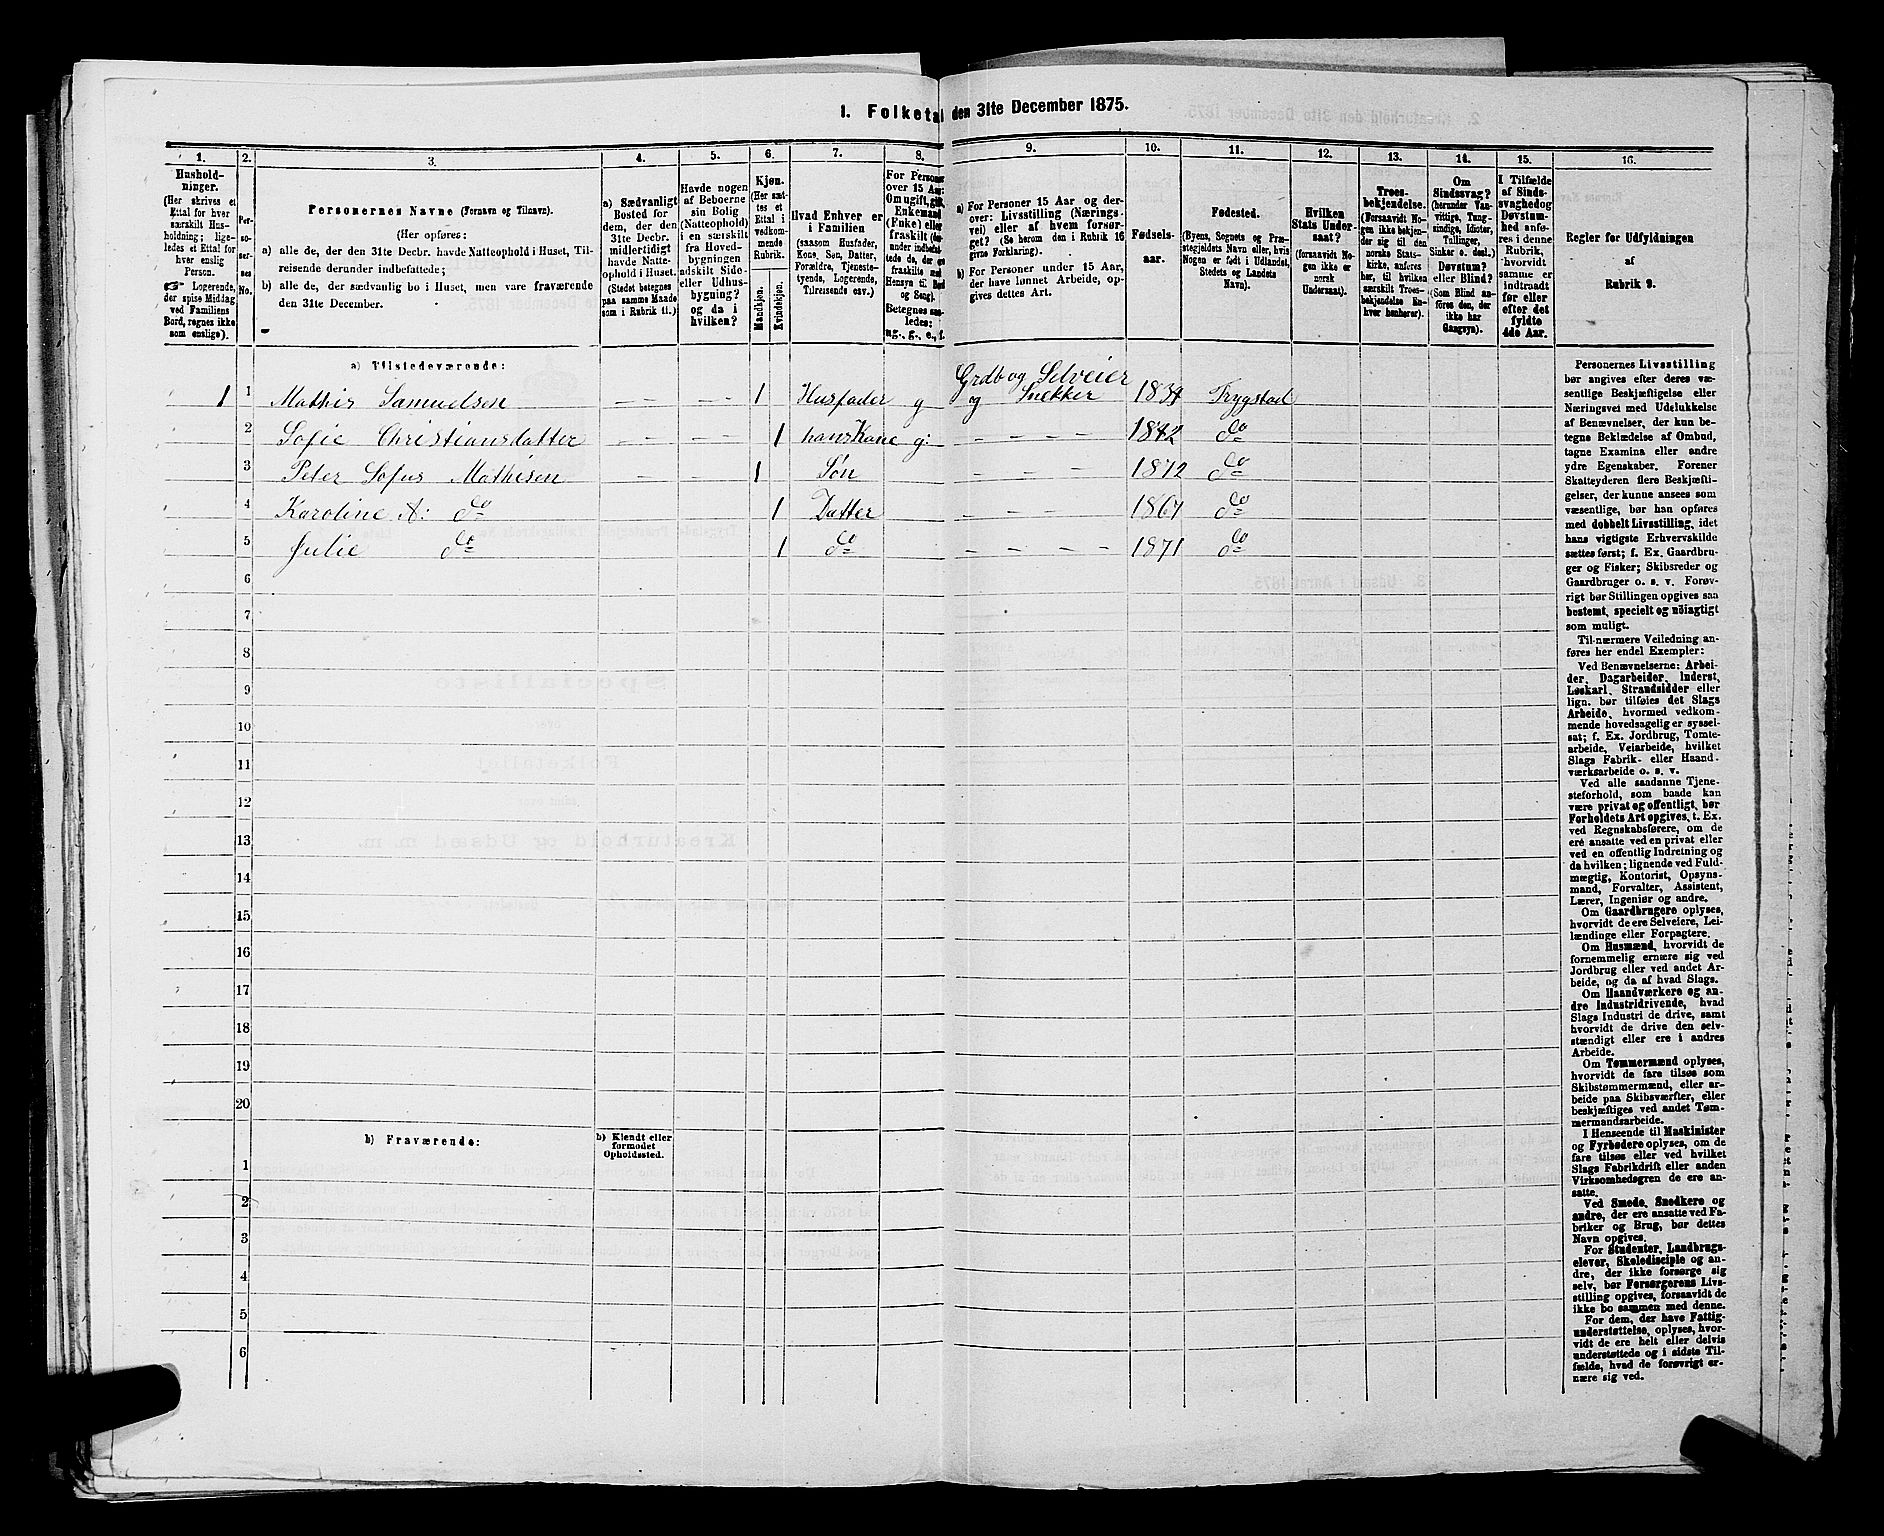 1. Folketal den 31te December 1875.
1. 2. 3. 4. 5. 6. 7. 8. 9. 10. 11. 12. 13. 14. 15. 16.
Hushold-
ninger.
(Her skrives et
Ettal for hver
særskilt Hus-
holdning; lige-
ledes et Ettal for
hver enslig
Person.
☞ Logerende,
der spise Middag
ved Familiens
Bord, regnes ikke
som enslige).
Per-
so-
ner-
nes
No.
Personernes Navne (Fornavn og Tilnavn).
(Her opføres:
a) alle de, der den 31te Decbr. havde Natteophold i Huset, Til-
reisende derunder indbefattede;
b) alle de, der sædvanlig bo i Huset, men vare fraværende
den 31te December.
a) Sædvanligt
Bosted for
dem, der den
31te Decbr.
midlertidigt
havde Natte-
ophold i Huset.
(Stedet betegnes
paa samme Maade
som i Rubrik 11.)
Havde nogen
af Beboerne
sin Bolig
(Natteophold)
i en særskilt
fra Hoved-
bygningen
adskilt Side-
eller Udhus-
bygning?
og da i
hvilken?
Kjøn.
(Her sæt-
tes et
Ettal i
vedkom-
mende
Rubrik.
Mandkjøn.
Kvindekjøn.
Hvad Enhver er
i Familien
(saasom Husfader,
Kone, Søn, Datter,
Forældre, Tjeneste-
tyende, Logerende,
Tilreisende osv.)
For Personer
over 15 Aar:
Om ugift, gift,
Enkemand
(Enke) eller
fraskilt
Betegnes saa-
ledes:
ug., g., e., f.
a) For Personer 15 Aar og der-
over: Livsstilling (Nærings-
vei) eller af hvem forsør-
get? (Se herom den i Rubrik 16
givne Forklaring).
b) For Personer under 15 Aar,
der have lønnet Arbeide, op-
gives dettes Art.
Fødsels-
aar.
Fødested.
(Byens, Sognets og Præ-
stegjeldets Navn eller, hvis
Nogen er født i Udlandet,
Stedets og Landets
Navn).
Hvilken
Stats Under-
saat?
(foraavidt No-
gen ikke er
norsk
Undersaat).
Troes-
bekjendelse.
(Forsaavidt No-
gen ikke bekjen-
der sig til den
norske Stats-
kirke, anføres
her, til hvilken
særskilt Troes-
bekjendelse En-
hver henhører).
Om
Sindssvag?
(herunder Van-
vittige, Tung-
sindige, Idioter,
Tullinger,
Sinker o. desl.)
Døvstum?
eller Blind?
(Som Blind an-
føres den, der
ikke har
Gangsyn).
I Tilfælde
af Sinds-
svaghed og
Døvstum-
hed anfø-
res i denne
Rubrik,
hvorvidt
samme er
indtraadt
før eller
efter det
fyldte
4de Aar.
Regler for Udfyldningen
af
Rubrik 9.
a) Tilstedeværende:
Grdb og Selveier
1 1 Mathis Samuelsen – – – 1 Husfader g og Snekker 1834 Trygstad
2 Sofie Christiansdatter – – – – 1 hans Kone g: – – – 1842 do
3 Peter Sofus Mathisen – – – 1 Søn – – – – 1872 do
4 Karoline A: do 1 Datter – – – – 1867 do
5 Julie do 1 do – – – – 1871 do
6
7
8
9
10
11
12
13
14
15
16
17
18
19
20
b) Fraværende:
b) Kjendt eller
formodet
Opholdssted.
1
2
3
4
5
6
Personernes Livsstilling
bør angives efter deres væ-
sentlige Beskjæftigelse eller
Næringsvei med Udelukkelse
af Benævnelser, der kun be-
tegne Beklædelse af Ombud,
tagne Examina eller andre
ydre Egenskaber. Forener
Skatteyderen flere Beskjæfti-
gelser, der kunne ansees som
væsentlige, bør han opføres
med dobbelt Livsstilling, idet
hans vigtigste Erhvervskilde
sættes først; f. Ex. Gaardbru-
ger og Fisker; Skibsreder og
Gaardbruger o. s. v. Forøv-
rigt bør Stillingen opgives saa
bestemt, specielt og nöiagtigt
som muligt.
Til nærmere Veiledning an-
føres her endel Exempler:
Ved Benævnelserne: Arbei-
der, Dagarbeider, Inderst,
Løskarl, Strandsidder eller
lign. bør tilføies det Slags
Arbeide, hvormed vedkom-
mende hovedsagelig er syssel-
sat; f. Ex. Jordbrug, Tomte-
arbeide, Veiarbeide, hvilket
Slags Fabrik- eller Haand-
værksarbeide o. s. v.
Ved alle saadanne Tjene-
steforhold, som baade kan
være privat og offentligt, bør
Forholdets Art opgives, t. Ex.
ved Regnskabsførere, om de
ere ansatte ved en privat eller
ved en offentlig Indretning og
da hvilken; lignende ved Fuld-
mægtig, Kontorist, Opsyns-
mand, Forvalter, Assistent,
Lærer, Ingeniør og andre.
Om Gaardbrugere oplyses,
hvorvidt de ere Selveiere, Lei-
lændinge eller Forpagtere.
Om Husmænd, hvorvidt de
fornemmelig ernære sig ved
Jordbrug eller ved andet Ar-
beide, og da af hvad Slags.
Om Haandværkere og an-
dre Industridrivende, hvad
Slags Industri de drive, samt
hvorvidt de drive den selv-
stændigt eller ere i andres
Arbeide.
Om Tømmermænd oplyses,
hvorvidt de fare tilsøs som
Skibstømmermænd, eller ar-
beide paa Skibsværfter, eller
beskjæftiges ved andet Tøm-
mermandsarbeide.
I Henseende til Maskinister
og Fyrbødere oplyses, om de
fare tilsøs eller ved hvilket
Slags Fabrikdrift eller anden
Virksomhedsgren de ere an-
satte.
Ved Smede, Snedkere og
andre, der ere ansatte ved Fa-
briker og Brug, bør dettes
Navn opgives.
For Studenter, Landbrugs-
elever, Skoledisciple og an-
dre, der ikke forsørge sig
selv, bør Forsørgerens Livs-
stilling opgives, forsaavidt de
ikke bo sammen med denne.
For dem, der have Fattig-
understøttelse, oplyses, hvor-
vidt de ere helt eller delvis
understøttede og i sidste Til-
fælde, hvad de forøvrigt er-
nære sig ved.